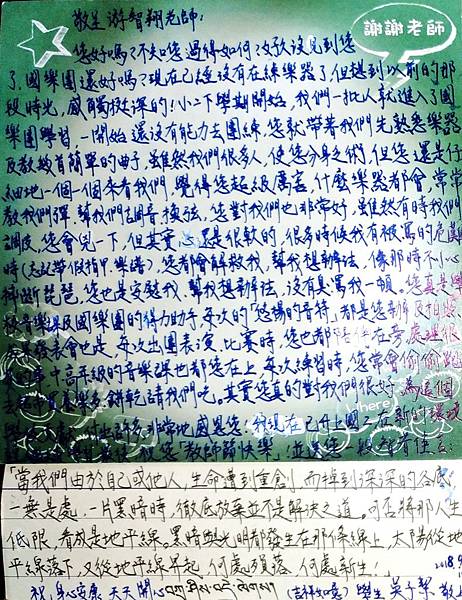 敬呈 游智翔老師：
謝謝老師
您好嗎？不知您過得如何？好久沒見到您
了，國樂團還好嗎？現在已經沒有在練樂器了，但想到以前的那
段時光，感觸挺深的！小二下學期開始，我們一批人就進入了國
樂團學習，一開始還沒有能力去團練，您就帶著我們先熟悉樂器
及教幾首簡單的曲子，雖然我們很多人，使您分身乏術，但您還是仔
細地一個一個來看我們，覺得您超級厲害，什麼樂器都會，常常
教我們彈、替我們調音、換弦，您對我們也非常好，雖然有時我們
調皮，您會兇一下，但其實您還是很軟的，很多時候我有被罵的危機
時（忘記帶假指甲、樂譜），您都會解救我，幫我想辦法，像那時不小心
摔斷琵琶，您也是安慰我、幫我想辦法，沒有臭罵我一頓。您真是
音樂 國樂團的得力助手，每次的「悠揚的音符」都是您
發表會也是，每次出團表演、比賽時，您也都陪伴在旁，處理
中高年級的音樂課也都您在上，每次練習時，您常會偷偷
多餅乾請我們吃。其實您真的對我們很好，為這個
許多，非常地感恩您！我現在已升國二，在新的環境
祝您「教師節快樂」！並送您一段智者佳言：
「當我們由於自己或他人，生命遭到重創，而掉到深深的谷底，
一無是處，一片黑暗時，徹底放棄並不是解決之道。可否將那人生
低限，看成是地平線。黑暗與光明都發生在那條線上，太陽從地
平線落下，又從地平線昇起，何處頹落，何處新生！」
祝 身心安康 天天開心 （吉祥如意） 學生 吳子 敬上
2018.9